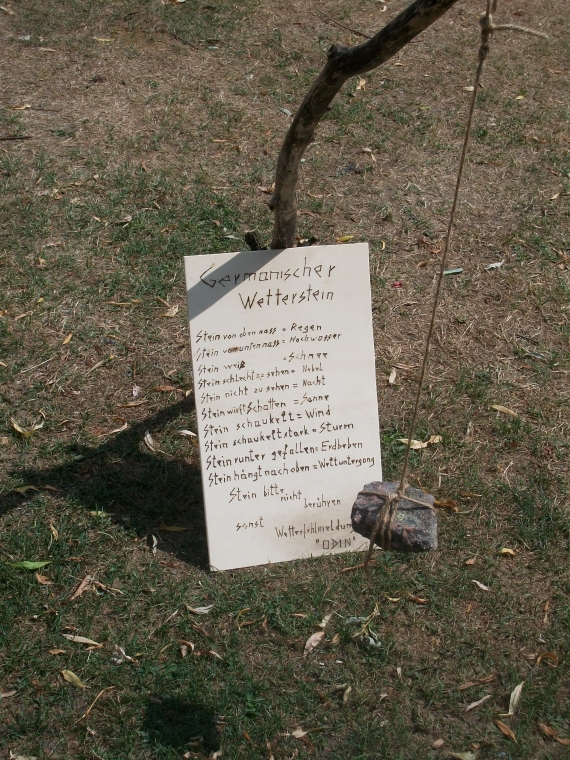 Germanischer
Wetterstein
Stein von oben nass = Regen
Stein von unten nass = Hochwasser
Stein weiß = Schnee
Stein schlecht zu sehen = Nebel
Stein nicht zu sehen = Nacht
Stein wirft Schatten = Sonne
Stein schaukelt = Wind
Stein schaukelt stark = Sturm
Stein runter gefallen = Erdbeben
Stein hängt nach oben = Weltuntergang
Stein bitte nicht berühren
sonst Wetterfehlmeldung
"ODIN"